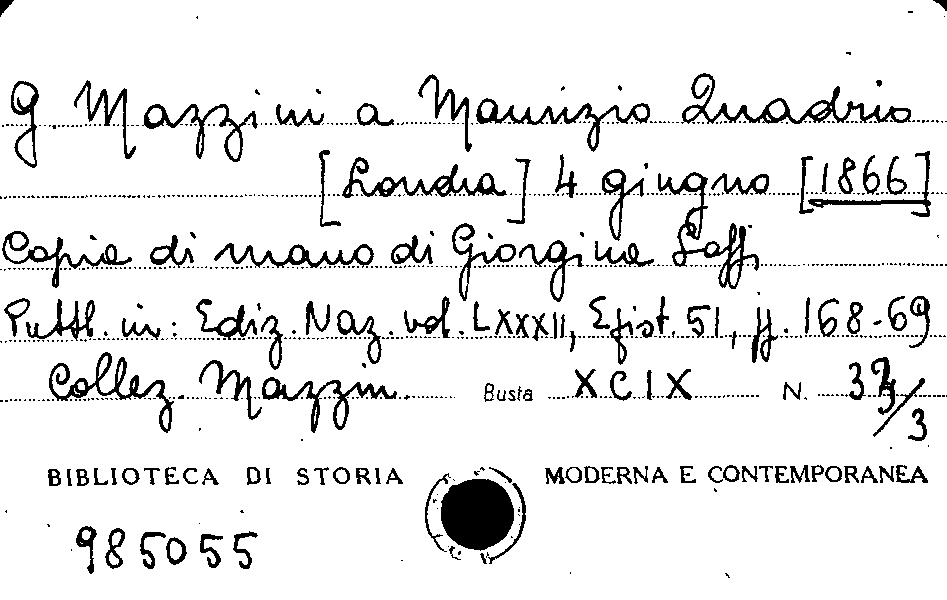 G. Mazzini a Maurizio Quadrio
[Londra] 4 giugno [1866]
Copia di mano di Giorgina Saffi
Pubbl. in: Ediz. Naz. vol. LXXXII, Epist. 51, pp. 168-69
Collez. Mazzin. Busta XCIX N. /3
BIBLIOTECA DI STORIA MODERNA E CONTEMPORANEA
985055